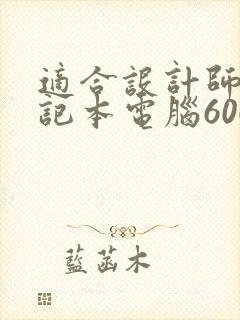 適合設計師
記本電腦60
藍菡木